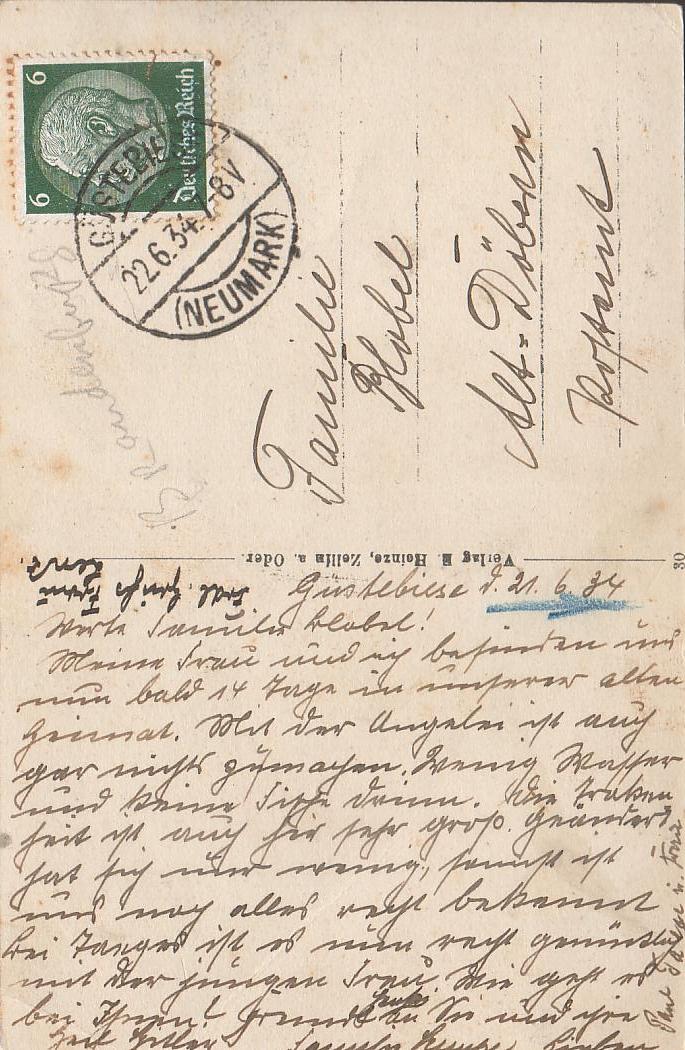 6 6
Deutsches Reich
GÜSTEBIESE
22.6.34. 7-8V
(NEUMARK)
Brandenburg
Familie
Blobel
Alt-Döbern
Postamt
Verlag E. Heinze, Zellin a. Oder.
30
Güstebiese d. 21. 6. 34
Werte Familie Blobel!
Meine Frau und ich befinden uns
nun bald 14 Tage in unserer alten
Heimat. Mit der Angelei ist auch
gar nichts zumachen. Wenig Wasser
und keine Fische drinn. Die Troken
heit ist auch hir sehr groß. Geändert
hat sich nur wenig, sonnst ist
uns noch alles recht bekannt
bei Tanges ist es nun recht gemütlich
mit der jungen Frau. Wie geht es
bei Ihnen?
Sie und ihre
Heil Hitler Familie
lieben
Paul u. Frau